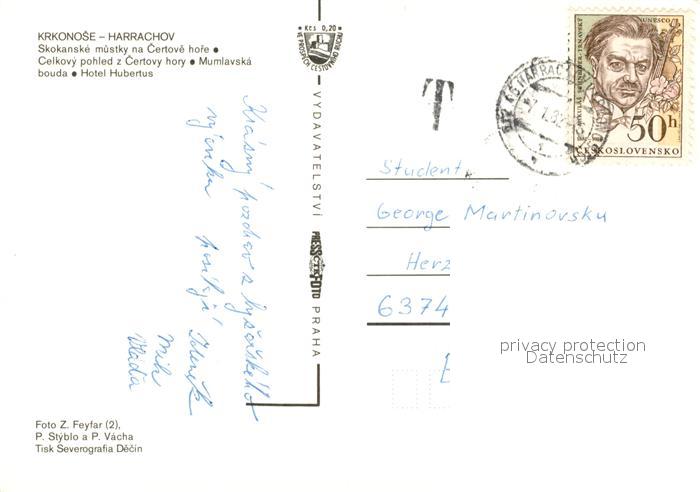 KRKONOŠE – HARRACHOV
Skokanské můstky na Čertově hoře •
Celkový pohled z Čertovy hory • Mumlavská
bouda • Hotel Hubertus
Kčs 0,20
VE PROSPĚCH CESTOVNÍHO RUCHU
VYDAVATELSTVÍ
PRESSFOTO
ČTK
PRAHA
T
UNESCO
50h
ČESKOSLOVENSKO
Krásný pozdrav z
Zdeněk
Mih
Vláďa
Student
George Martinovsku
Herz
6374
privacy protection
Datenschutz
Foto Z. Feyfar (2),
P. Stýblo a P. Vácha
Tisk Severografia Děčín